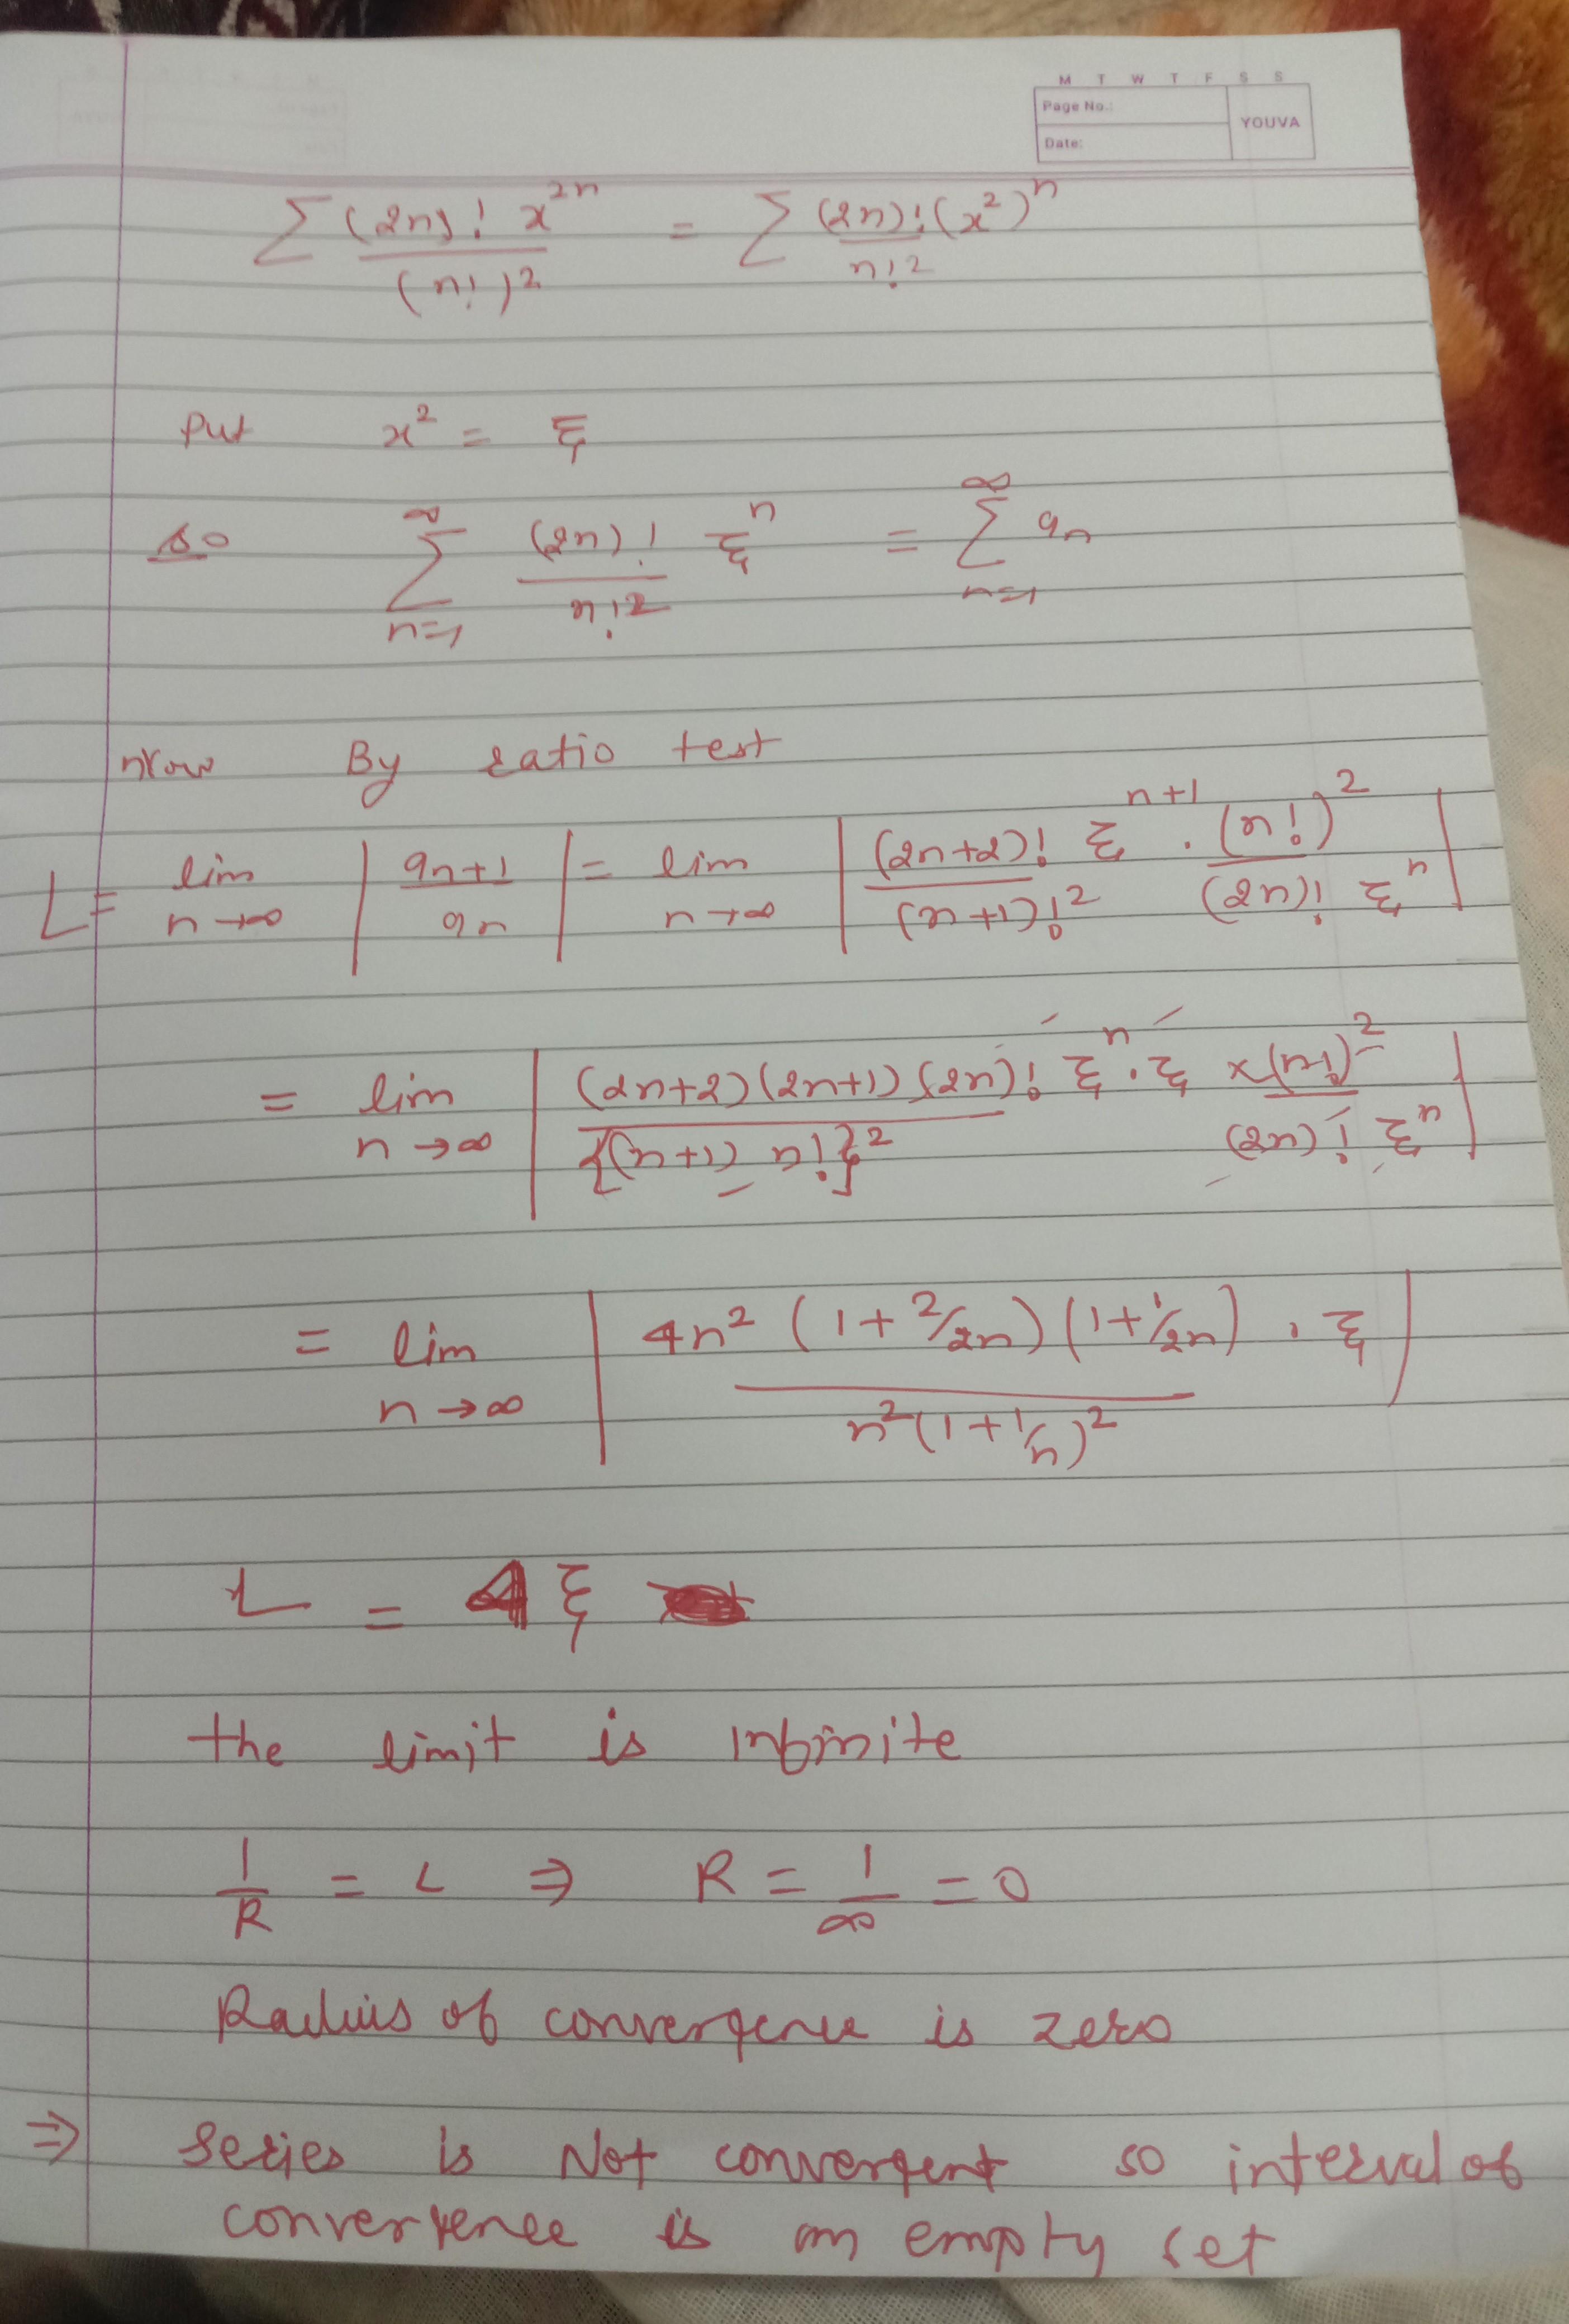 M T W T F S S
Page No.:
YOUVA
Date:
∑ (2n)! x^2n / (n!)^2 = ∑ (2n)! (x^2)^n / n!^2
Put x^2 = ξ
so ∑_{n=1}^{∞} (2n)! / n!^2 ξ^n = ∑_{n=1}^{∞} a_n
Now By ratio test
L = lim_{n→∞} | a_{n+1} / a_n | = lim_{n→∞} | (2n+2)! ξ^{n+1} / (n+1)!^2 . (n!)^2 / (2n)! ξ^n |
= lim_{n→∞} | (2n+2)(2n+1)(2n)! ξ^n . ξ / {(n+1) n!}^2 × (n!)^2 / (2n)! ξ^n |
= lim_{n→∞} | 4n^2 (1+2/2n)(1+1/2n) . ξ / n^2(1+1/n)^2 |
L = 4ξ
the limit is infinite
1/R = L ⇒ R = 1/∞ = 0
Radius of convergence is zero
⇒ series is Not convergent so interval of
convergence is an empty set